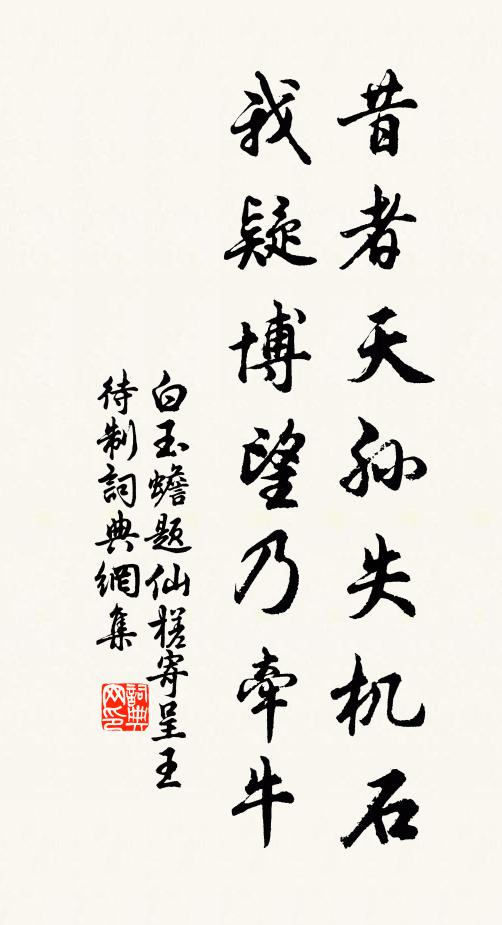 昔者天孙失机石
我疑博望乃牵牛
白玉蟾题仙槎寄呈王
待制词典網集
詞典网印